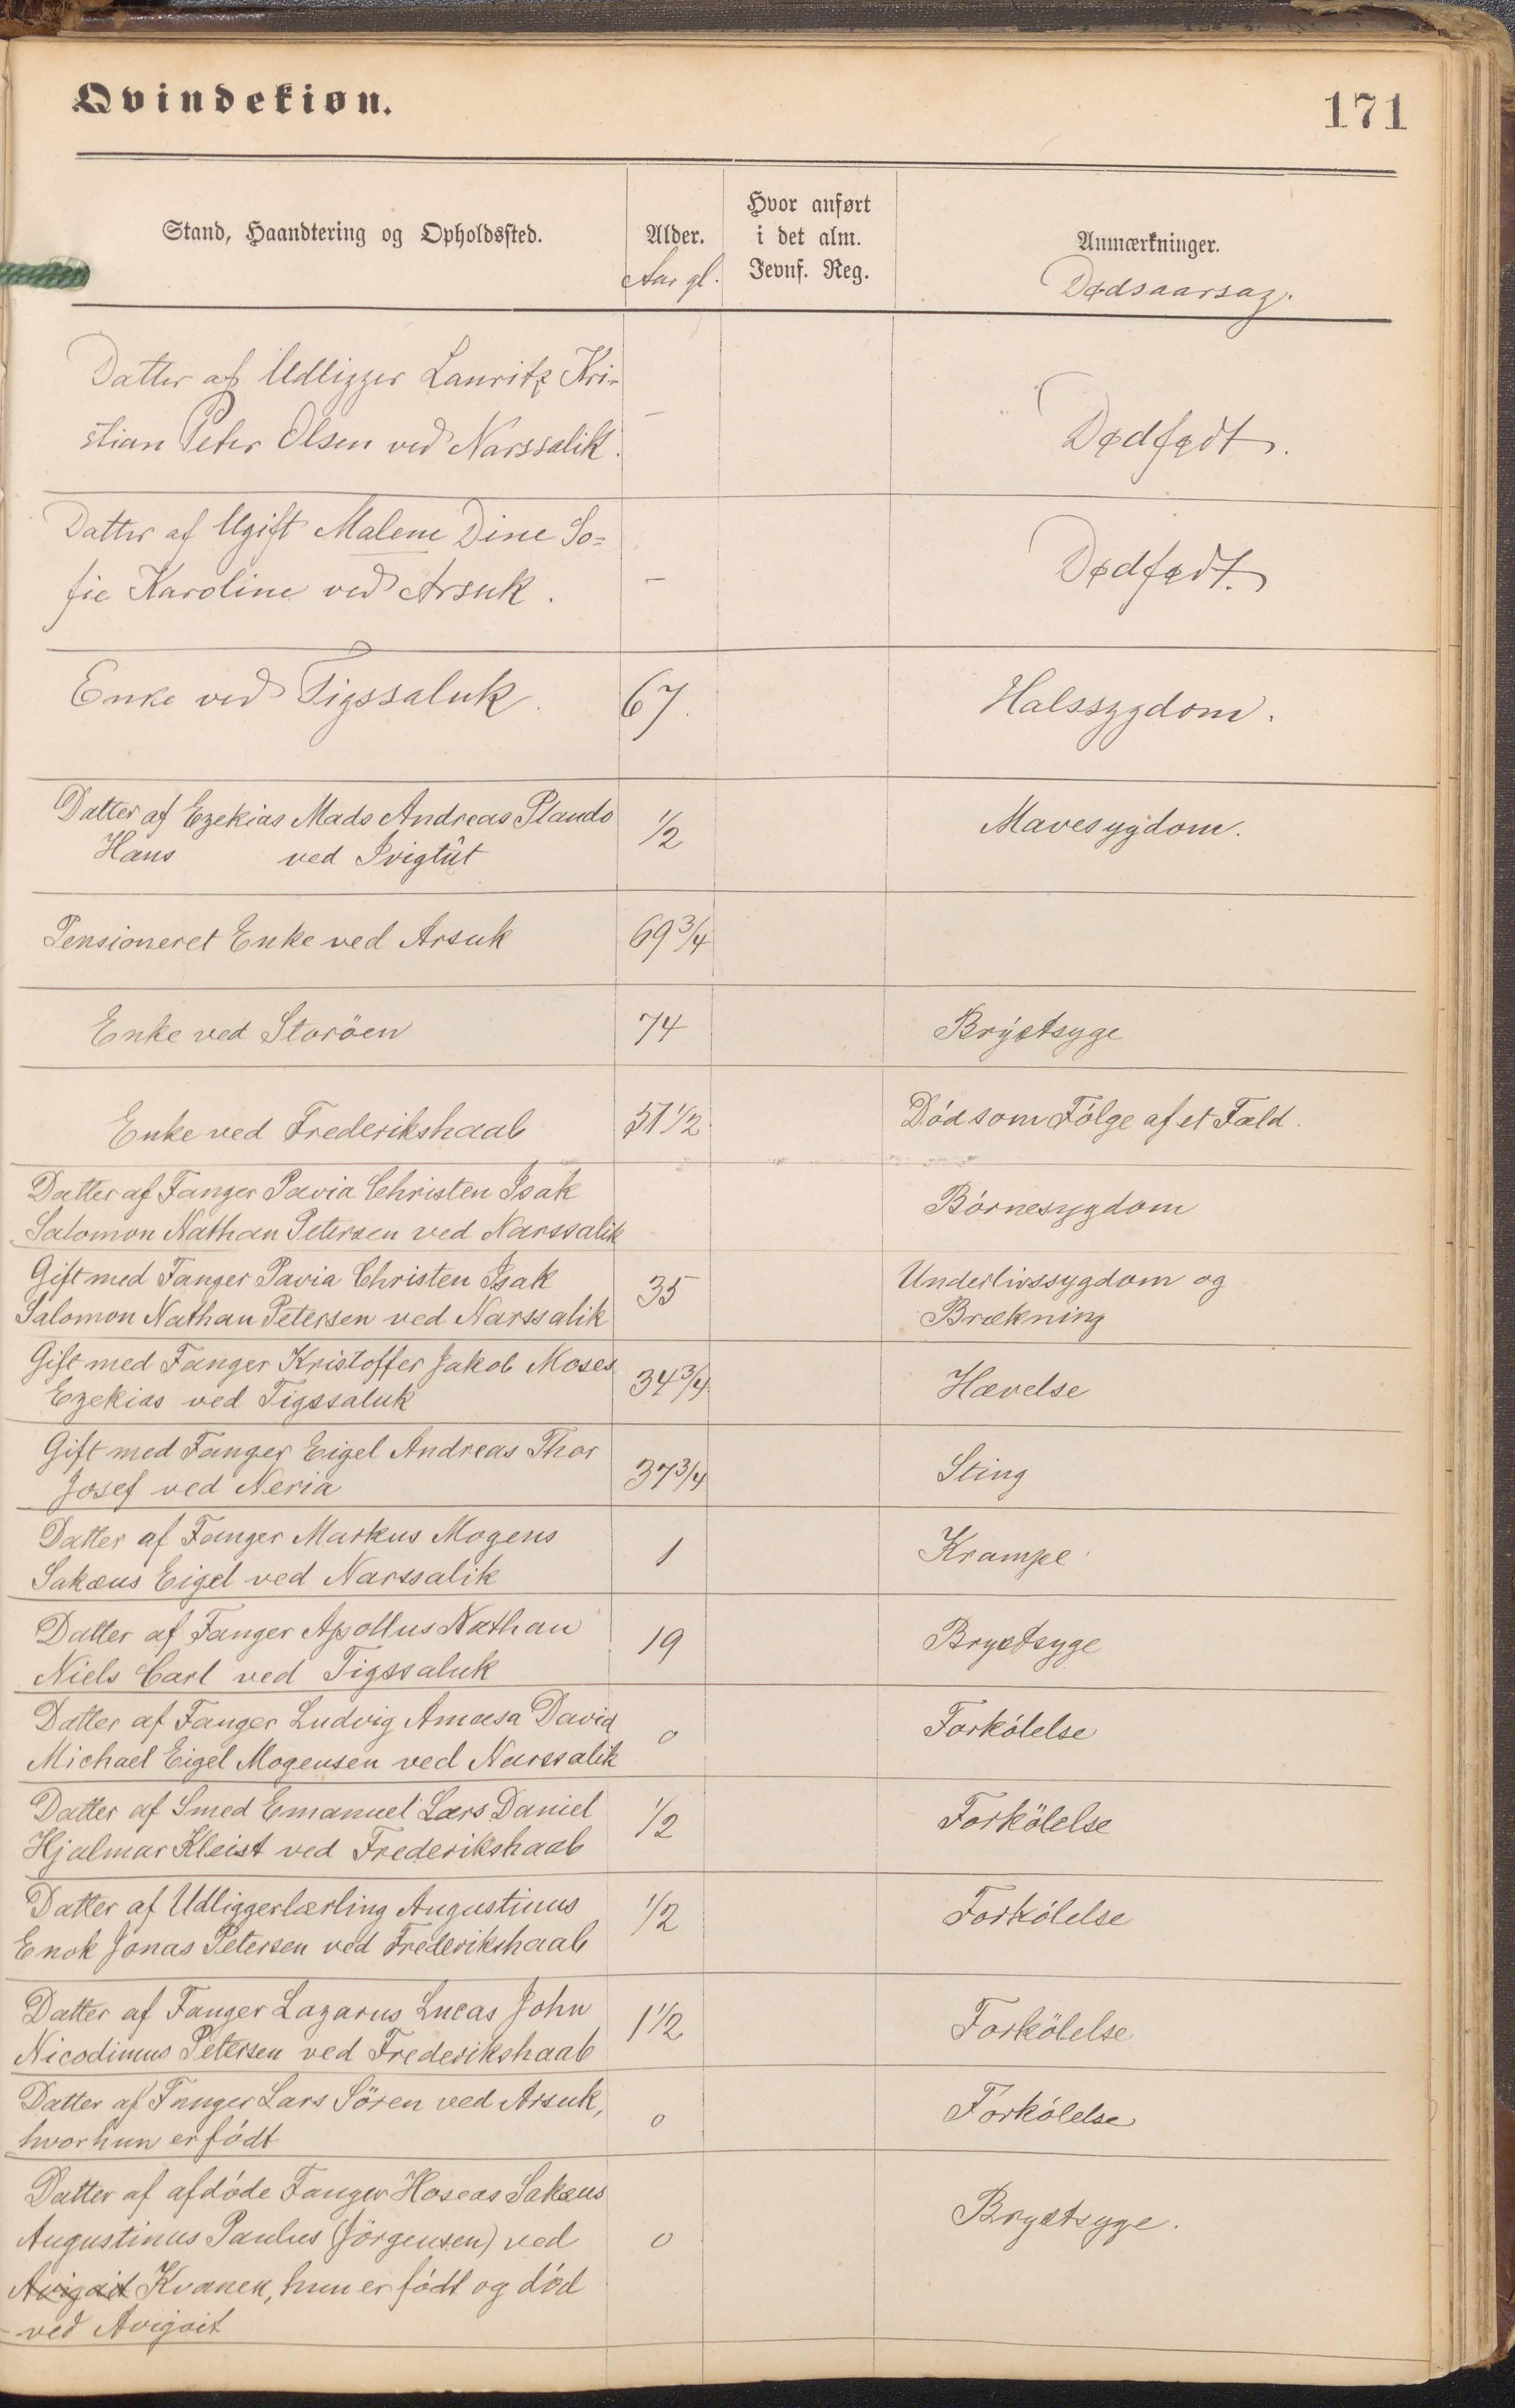 Qvindekiøn.
171
Stand, Haandtering og Opholdssted.
Alder.
Aar gl.
Hvor anført
i det alm.
Jevnf. Reg.
Anmærkninger.
Dødsaarsag.
Datter af Udligger Lauritz Kri-
stian Peter Olsen ved Narssalik.
-
Dødfødt.
Datter af Ugift Malene Dine So=
fie Karoline ved Arsuk.
-
Dødfødt.
Enke ved Tigssaluk.
67.
Halssygdom.
Datter af Ezekias Mads Andreas Plando
Hans ved Ivigtût
1/2
Mavesygdom.
Pensioneret Enke ved Arsuk
69 3/4
Enke ved Storöen
74
Brystsyge
Enke ved Frederikshaab
51 1/2
Död som Fölge af et Fald.
Datter af Fanger Pavia Christen Isak
Salomon Nathan Petersen ved Narssalik
Börnesygdom
Gift med Fanger Pavia Christen Isak
Salomon Nathan Petersen ved Narssalik
35
Underlivssygdom og
Brækning
Gift med Fanger Kristoffer Jakob Moses
Ezekias ved Tigssaluk
34 3/4
Hævelse
Gift med Fanger Eigel Andreas Thor
Josef ved Neria
37 3/4
Sting
Datter af Fanger Markus Mogens
Sakæus Eigel ved Narssalik
1
Krampe
Datter af Fanger Apollus Nathan
Niels Carl ved Tigssaluk
19
Brystsyge
Datter af Fanger Ludvig Amasa David
Michael Eigel Mogensen ved Narssalik
0
Forkölelse
Datter af Smed Emanuel Lars Daniel
Hjalmar Kleist ved Frederikshaab
1/2
Forkölelse
Datter af Udliggerlærling Augustinus
Enok Jonas Petersen ved Frederikshaab
1/2
Forkölelse
Datter af Fanger Lazarus Lucas John
Nicodimus Petersen ved Frederikshaab
1 1/2
Forkölelse
Datter af Fanger Lars Sören ved Arsuk,
hvor hun er födt
0
Forkölelse
Datter af afdöde Fanger Hoseas Sakæus
Augustinus Paulus (Jörgensen) ved
Avigait Kvanek, hun er födt og död
ved Avigait
0
Brystsyge.